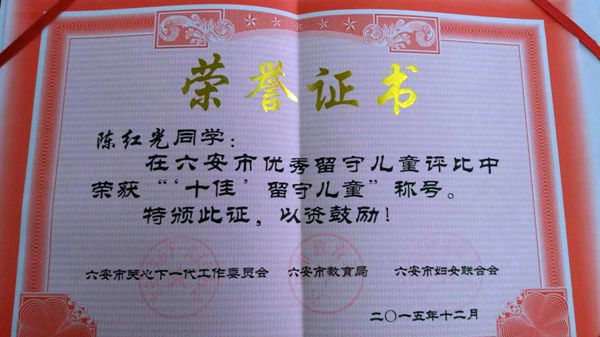 荣誉证书
陈红光同学：
在六安市优秀留守儿童评比中
荣获“‘十佳’留守儿童”称号。
特颁此证，以资鼓励！
六安市关心下一代工作委员会 六安市教育局 六安市妇女联合会
二〇一五年十二月